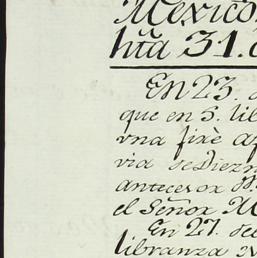 Mexico
hta 31.
En 23.
que en 5. lib
vna fixè
via se Diezm
antecesor D.
el Señor M
En 27. de
libranza